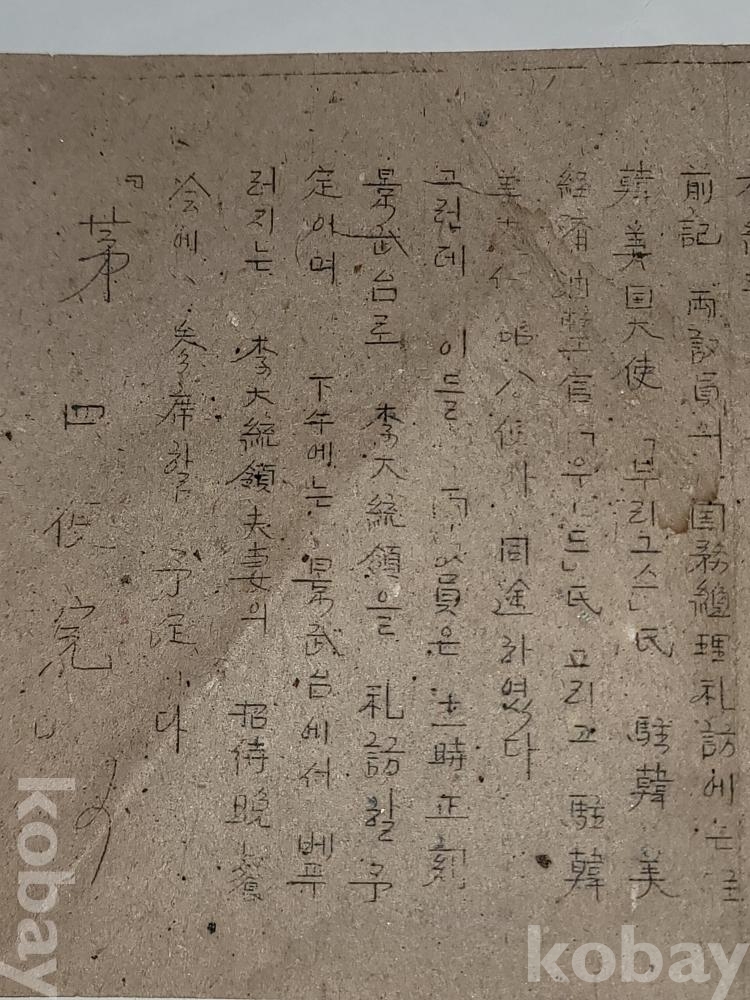 前記 両議員의 国務總理礼訪에는 駐
韓美国大使 「부리그스」氏 駐韓美
経済調整官 「우드」氏 그리고 駐韓
美大 同途하였다
그런데 이들 両議員은 時正刻
景武台로 李大統領을 礼訪할 予
定이며 下午에는 景武台에서 베푸
러지는 李大統領夫妻의 招待晩餐
会에 参席할 予定이다
『第四便 完』
kobay
kobay